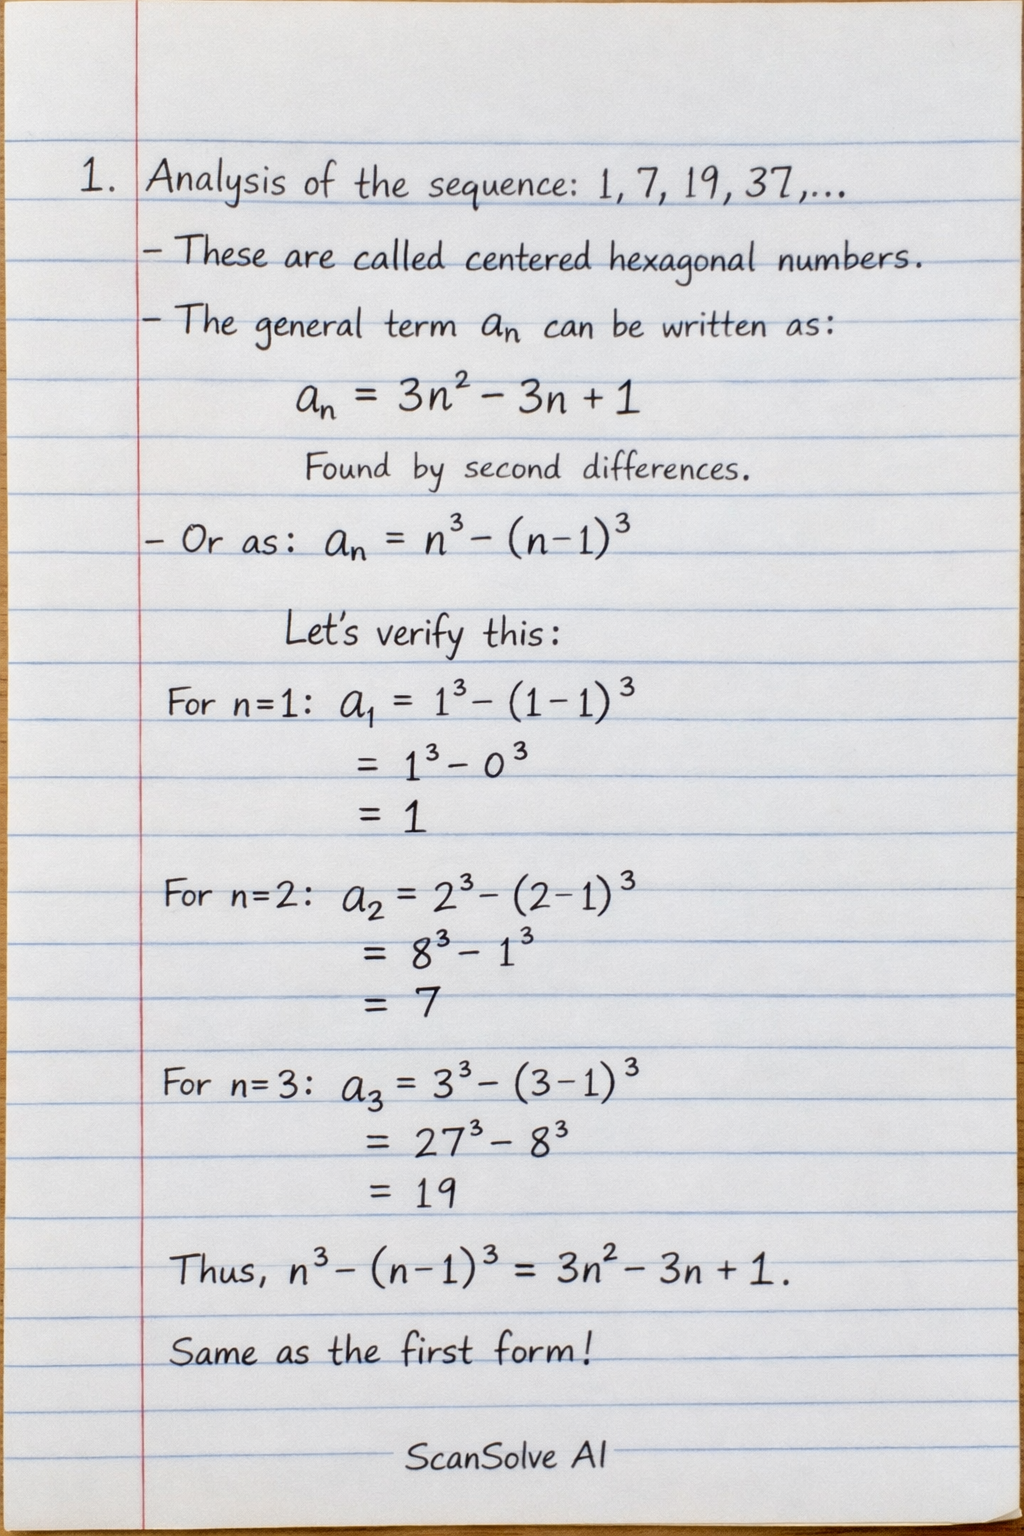 1. Analysis of the sequence: 1, 7, 19, 37,...
– These are called centered hexagonal numbers.
– The general term aₙ can be written as:
aₙ = 3n² – 3n + 1
Found by second differences.
– Or as: aₙ = n³ – (n–1)³
Let's verify this:
For n=1: a₁ = 1³ – (1–1)³
= 1³ – 0³
= 1
For n=2: a₂ = 2³ – (2–1)³
= 8³ – 1³
= 7
For n=3: a₃ = 3³ – (3–1)³
= 27³ – 8³
= 19
Thus, n³ – (n–1)³ = 3n² – 3n + 1.
Same as the first form!
ScanSolve AI